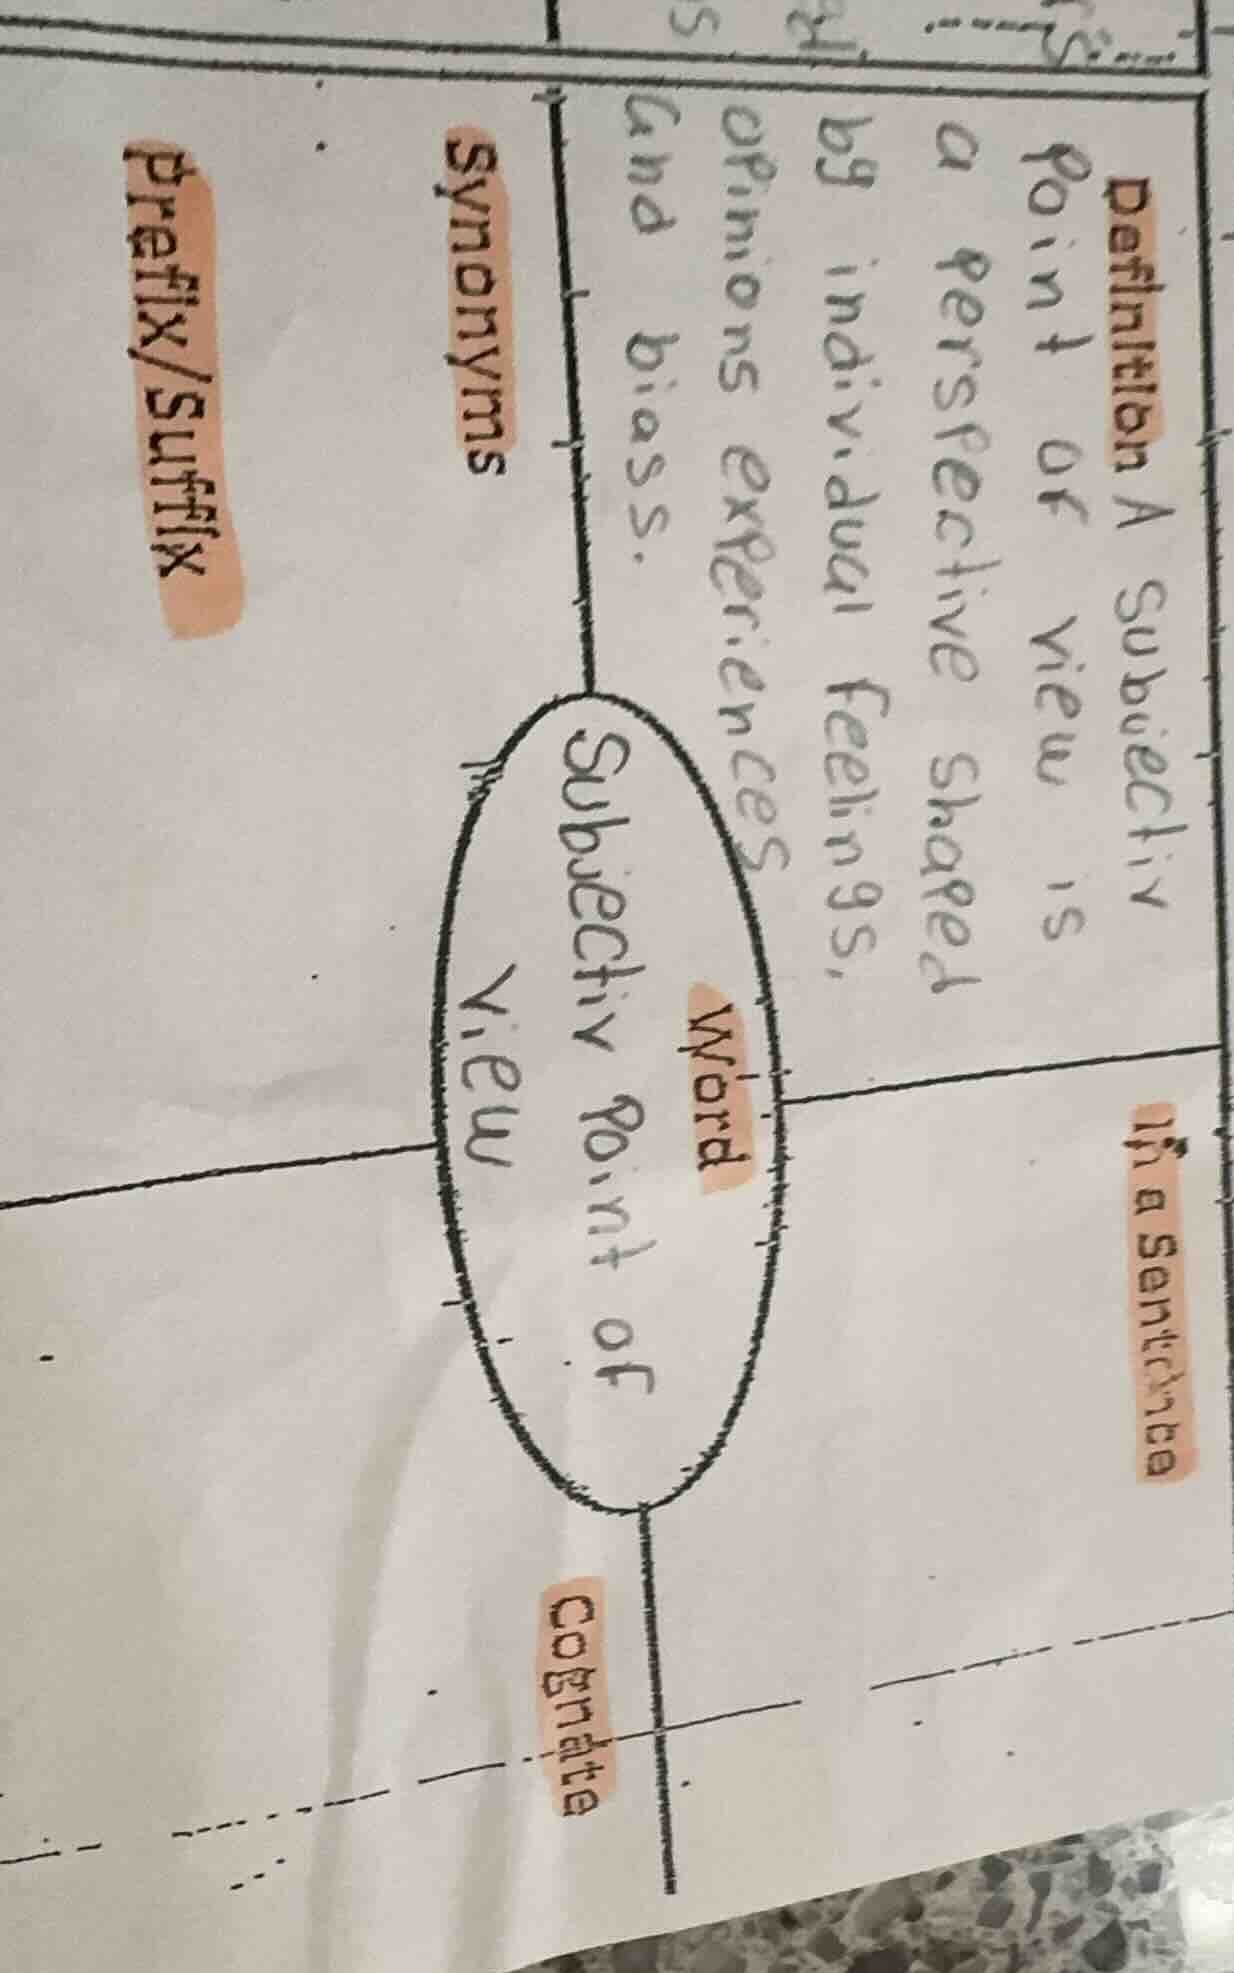 Definition A Subjectiv
Point of view is
a perspective shaped
by individual feelings,
opinions experiences
and biass.
In a Sentence
Word
Subjectiv Point of
view
Synonyms
Prefix/Suffix
Cognate